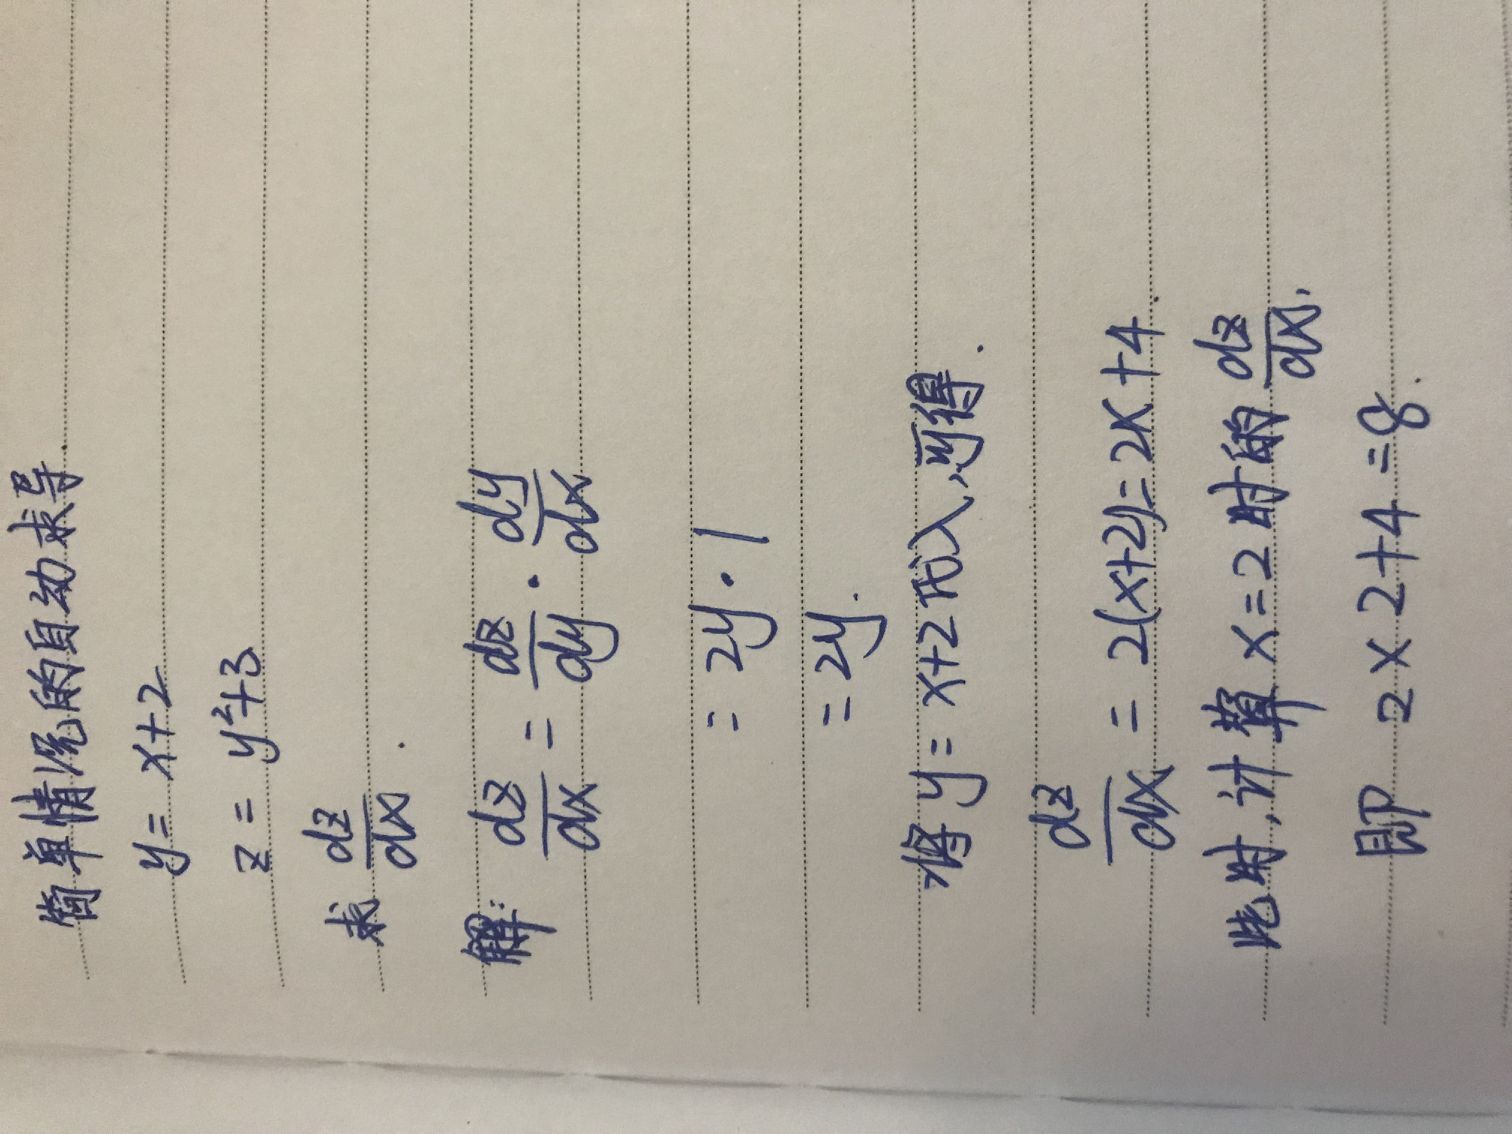 简单情况的自动求导
y = x+2
z = y²+3
求 dz/dx.
解: dz/dx = dz/dy · dy/dx
= 2y · 1
= 2y.
将 y = x+2 代入,可得.
dz/dx = 2(x+2) = 2x+4.
此时,计算 x=2 时的 dz/dx,
即 2×2+4=8.